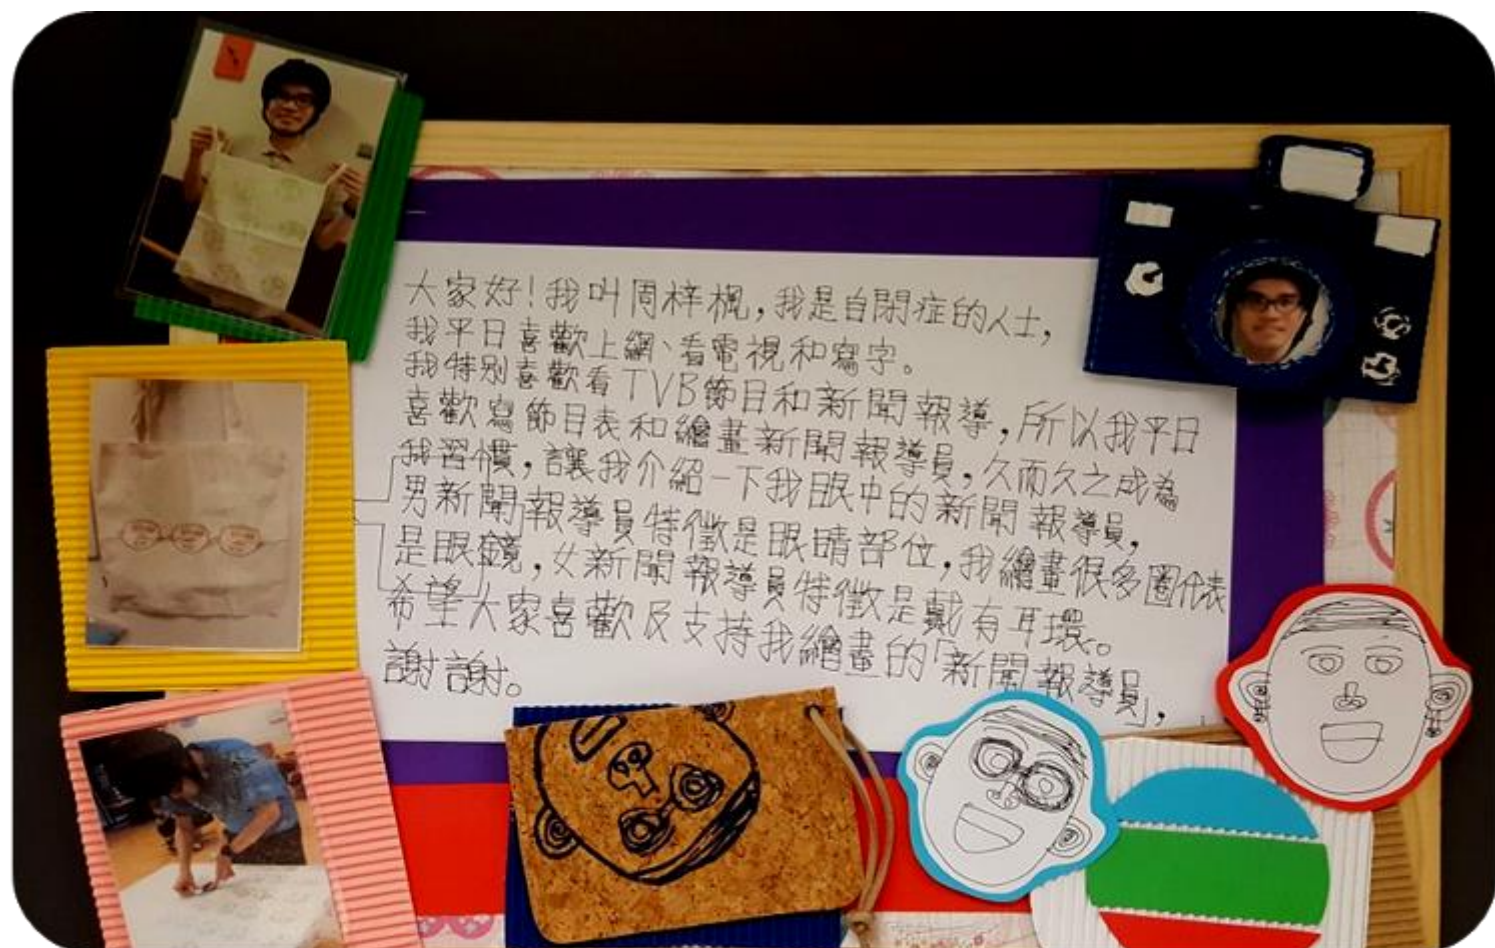 大家好!我叫周梓楓,我是自閉症的人士,
我平日喜歡上網、看電視和寫字。
我特别喜歡看TVB節目和新聞報導,所以我平日
喜歡寫節目表和繪畫新聞報導員,久而久之成為
我習慣,讓我介紹一下我眼中的新聞報導員,
男新聞報導員特徵是眼睛部位,我繪畫很多圈代表
是眼鏡,女新聞報導員特徵是戴有耳環。
希望大家喜歡及支持我繪畫的「新聞報導員」,
謝謝。